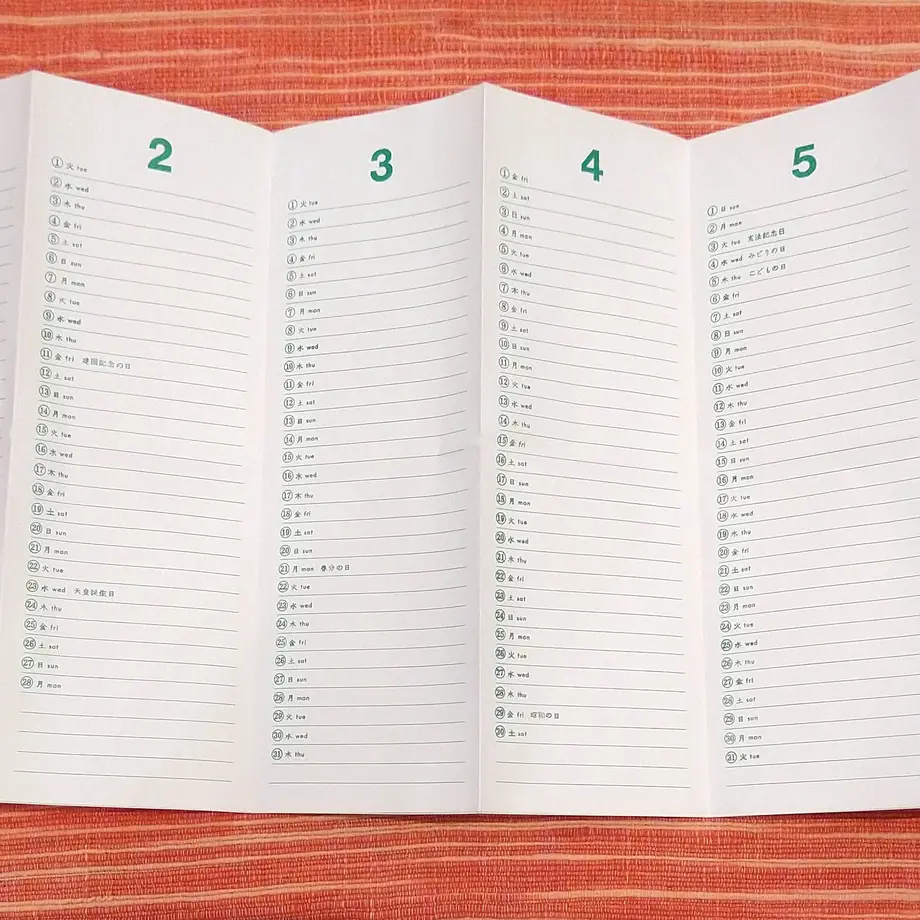 2
① 火 tue
② 水 wed
③ 木 thu
④ 金 fri
⑤ 土 sat
⑥ 日 sun
⑦ 月 mon
⑧ 火 tue
⑨ 水 wed
⑩ 木 thu
⑪ 金 fri 建国記念の日
⑫ 土 sat
⑬ 日 sun
⑭ 月 mon
⑮ 火 tue
⑯ 水 wed
⑰ 木 thu
⑱ 金 fri
⑲ 土 sat
⑳ 日 sun
㉑ 月 mon
㉒ 火 tue
㉓ 水 wed 天皇誕生日
㉔ 木 thu
㉕ 金 fri
㉖ 土 sat
㉗ 日 sun
㉘ 月 mon
3
① 火 tue
② 水 wed
③ 木 thu
④ 金 fri
⑤ 土 sat
⑥ 日 sun
⑦ 月 mon
⑧ 火 tue
⑨ 水 wed
⑩ 木 thu
⑪ 金 fri
⑫ 土 sat
⑬ 日 sun
⑭ 月 mon
⑮ 火 tue
⑯ 水 wed
⑰ 木 thu
⑱ 金 fri
⑲ 土 sat
⑳ 日 sun
㉑ 月 mon 春分の日
㉒ 火 tue
㉓ 水 wed
㉔ 木 thu
㉕ 金 fri
㉖ 土 sat
㉗ 日 sun
㉘ 月 mon
㉙ 火 tue
㉚ 水 wed
㉛ 木 thu
4
① 金 fri
② 土 sat
③ 日 sun
④ 月 mon
⑤ 火 tue
⑥ 水 wed
⑦ 木 thu
⑧ 金 fri
⑨ 土 sat
⑩ 日 sun
⑪ 月 mon
⑫ 火 tue
⑬ 水 wed
⑭ 木 thu
⑮ 金 fri
⑯ 土 sat
⑰ 日 sun
⑱ 月 mon
⑲ 火 tue
⑳ 水 wed
㉑ 木 thu
㉒ 金 fri
㉓ 土 sat
㉔ 日 sun
㉕ 月 mon
㉖ 火 tue
㉗ 水 wed
㉘ 木 thu
㉙ 金 fri 昭和の日
㉚ 土 sat
5
① 日 sun
② 月 mon
③ 火 tue 憲法記念日
④ 水 wed みどりの日
⑤ 木 thu こどもの日
⑥ 金 fri
⑦ 土 sat
⑧ 日 sun
⑨ 月 mon
⑩ 火 tue
⑪ 水 wed
⑫ 木 thu
⑬ 金 fri
⑭ 土 sat
⑮ 日 sun
⑯ 月 mon
⑰ 火 tue
⑱ 水 wed
⑲ 木 thu
⑳ 金 fri
㉑ 土 sat
㉒ 日 sun
㉓ 月 mon
㉔ 火 tue
㉕ 水 wed
㉖ 木 thu
㉗ 金 fri
㉘ 土 sat
㉙ 日 sun
㉚ 月 mon
㉛ 火 tue